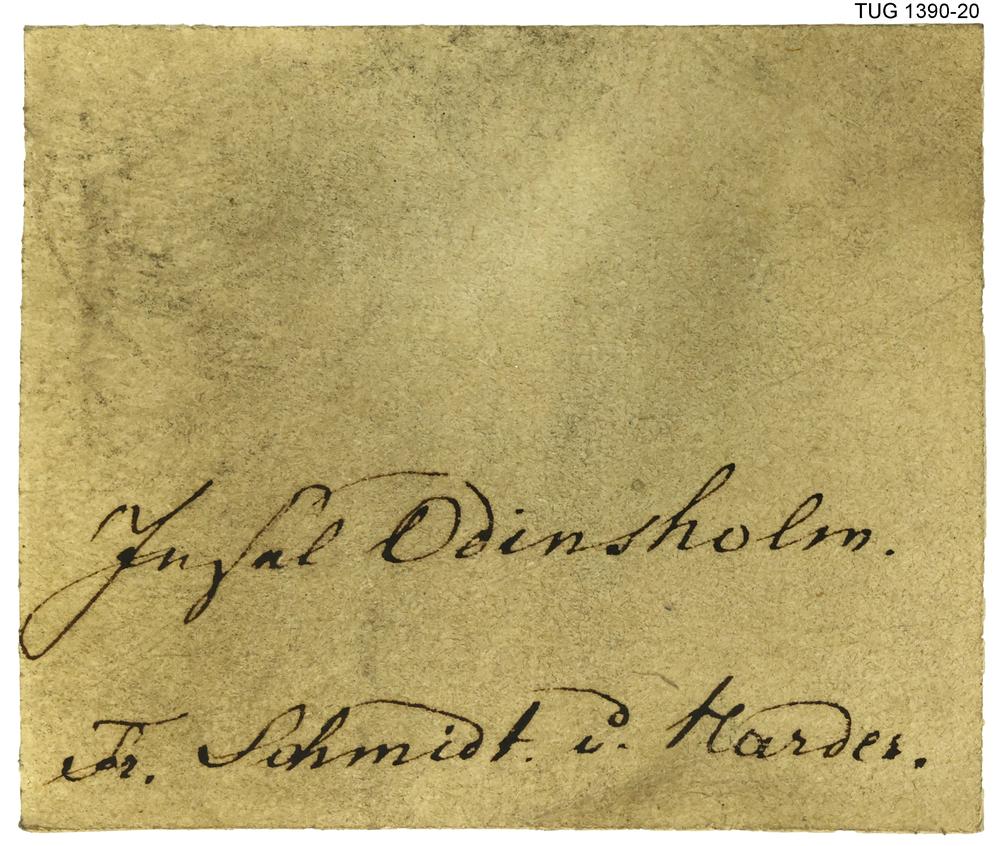 TUG 1390-20
Insel Odinsholm.
Fr. Schmidt. d. Harder.